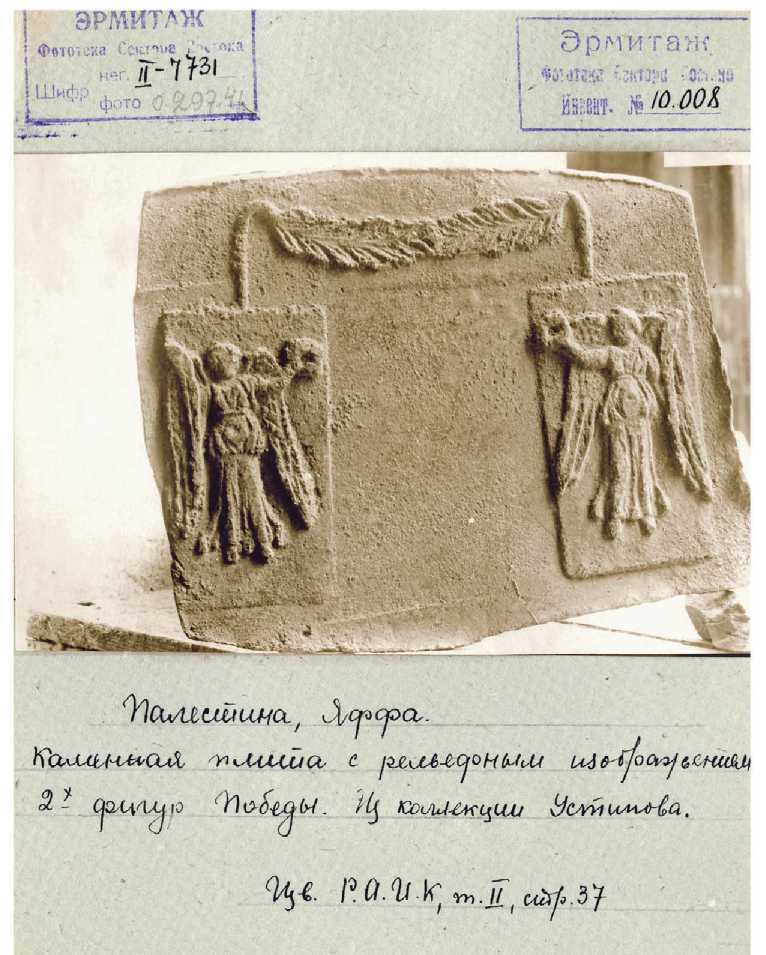 ЭРМИТАЖ
Фототека Сектора Востока
нег. II-7731
Шифр
фото 0.297.41
Эрмитаж
Фототека Сектора Востока
Инвент. № 10.008
Палестина, Яффа.
Каменная плита с рельефным изображением
2х фигур Победы. Из коллекции Устинова.
Изв. Р.А.И.К, т. II, стр. 37